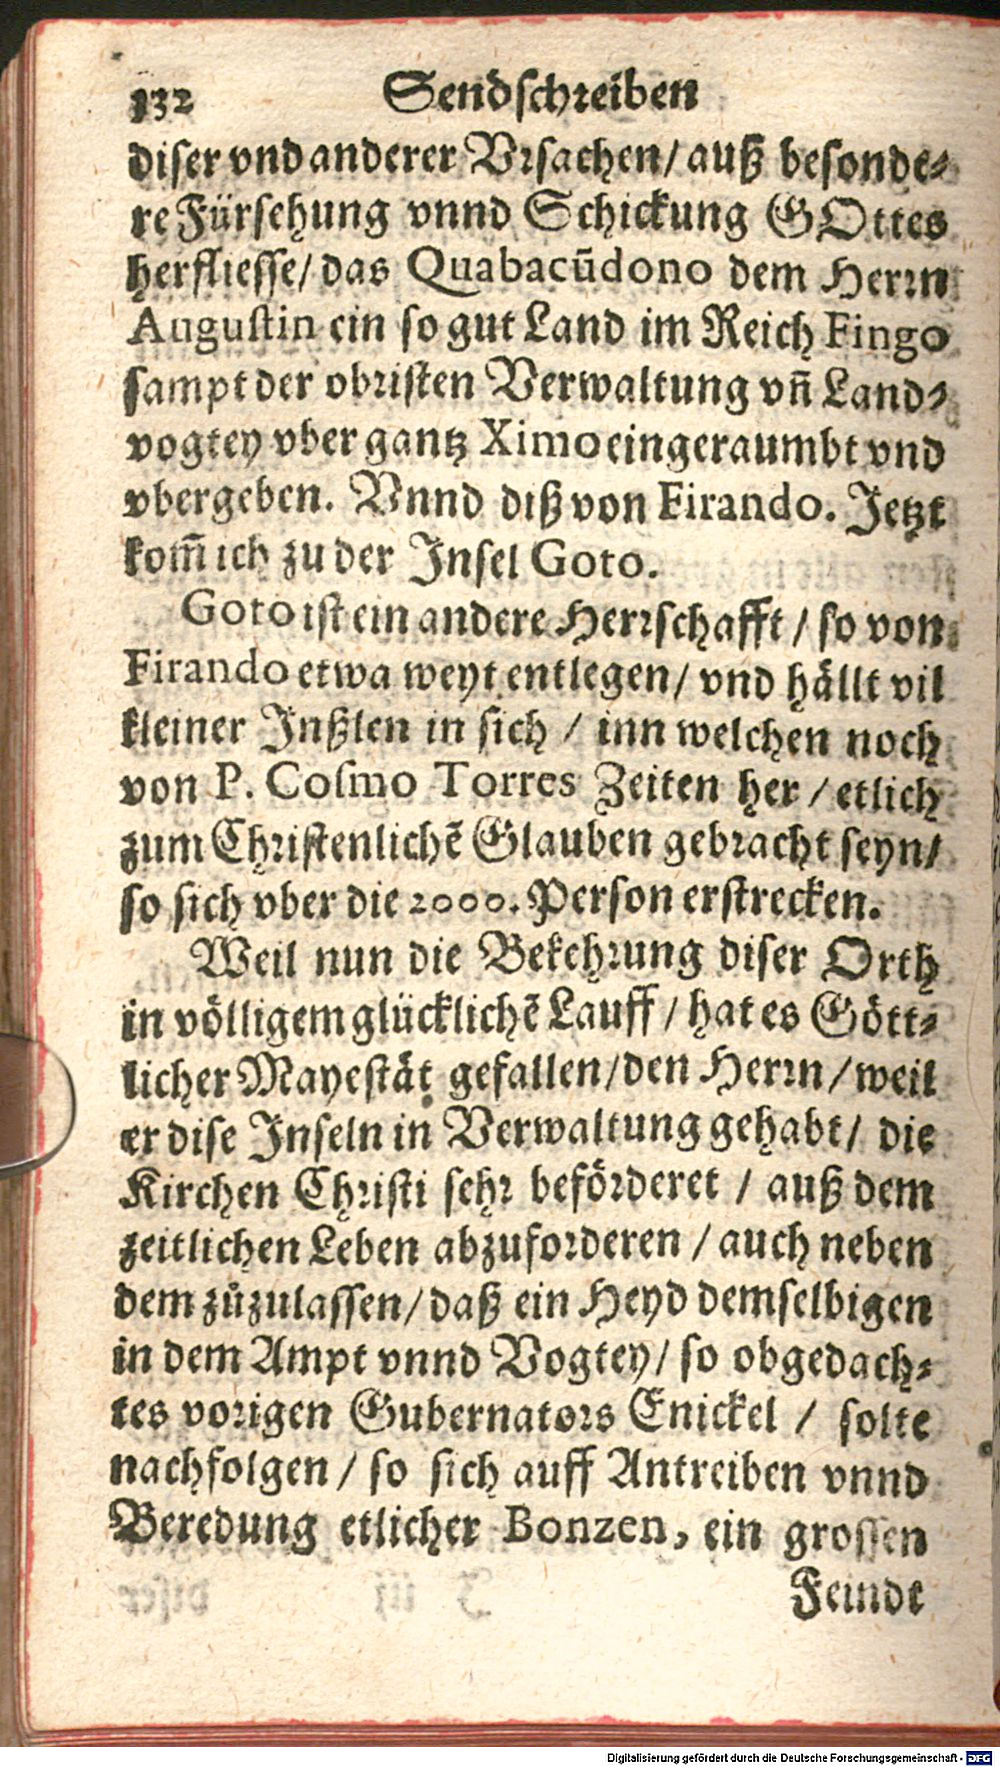 132 Sendschreiben
diser vnd anderer Vrsachen/ auß besonde-
re Fürsehung vnnd Schickung GOttes
herfliesse/ das Quabacūdono dem Herrn
Augustin ein so gut Land im Reich Fingo
sampt der obristen Verwaltung vn̄ Land-
vogtey vber gantz Ximo eingeraumbt vnd
vbergeben. Vnnd diß von Firando. Jetzt
kom̄ ich zu der Jnsel Goto.
Goto ist ein andere Herrschafft / so von
Firando etwa weyt entlegen/ vnd hällt vil
kleiner Jnßlen in sich / inn welchen noch
von P. Cosmo Torres Zeiten her / etlich
zum Christenlichē Glauben gebracht seyn/
so sich vber die 2000. Person erstrecken.
Weil nun die Bekehrung diser Orth
in völligem glücklichē Lauff / hat es Gött-
licher Mayestät gefallen/den Herrn/weil
er dise Jnseln in Verwaltung gehabt/ die
Kirchen Christi sehr beförderet / auß dem
zeitlichen Leben abzuforderen / auch neben
dem zůzulassen/ daß ein Heyd demselbigen
in dem Ampt vnnd Vogtey/ so obgedach-
tes vorigen Gubernators Enickel / solte
nachfolgen / so sich auff Antreiben vnnd
Beredung etlicher Bonzen, ein grossen
Feindt
Digitalisierung gefördert durch die Deutsche Forschungsgemeinschaft - DFG